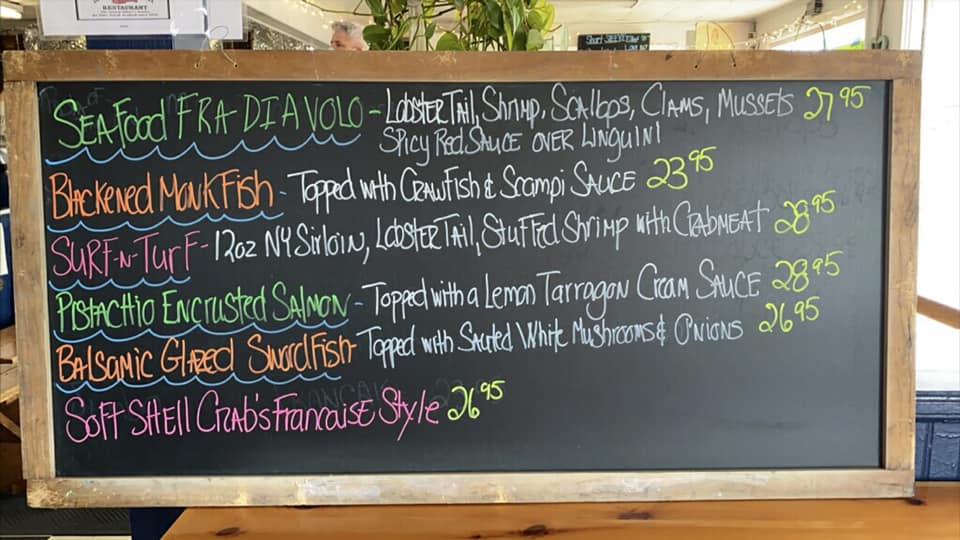 RESTAURANT
SEAFOOD FRA DIAVOLO - LOBSTER TAIL, SHRIMP, SCALLOPS, CLAMS, MUSSELS 27 95
SPICY RED SAUCE OVER LINGUINI
BLACKENED MONKFISH - TOPPED WITH CRAWFISH & SCAMPI SAUCE 23 95
SURF-N-TURF - 12oz NY SIRLOIN, LOBSTER TAIL, STUFFED SHRIMP WITH CRABMEAT 28 95
PISTACHIO ENCRUSTED SALMON - TOPPED WITH A LEMON TARRAGON CREAM SAUCE 28 95
BALSAMIC GLAZED SWORDFISH - TOPPED WITH SAUTED WHITE MUSHROOMS & ONIONS 26 95
SOFT SHELL CRAB'S FRANCAISE STYLE 26 95